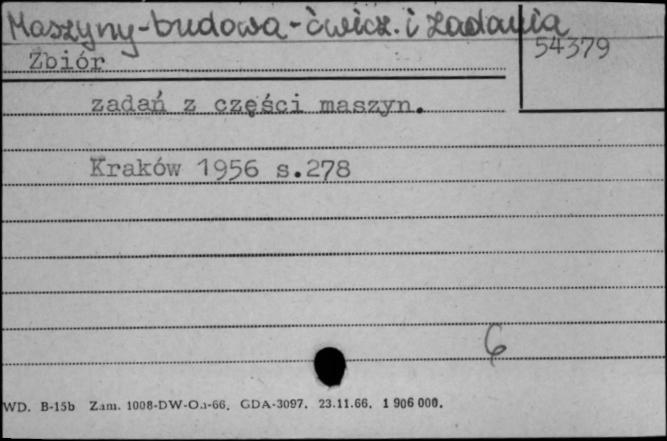 Maszyny-budowa-ćwicz. i zadania
54379
Zbiór
zadań z części maszyn.
Kraków 1956 s.278
6
WD. B-15b Zam. 1008-DW-Oa-66. GDA-3097. 23.11.66. 1 906 000.